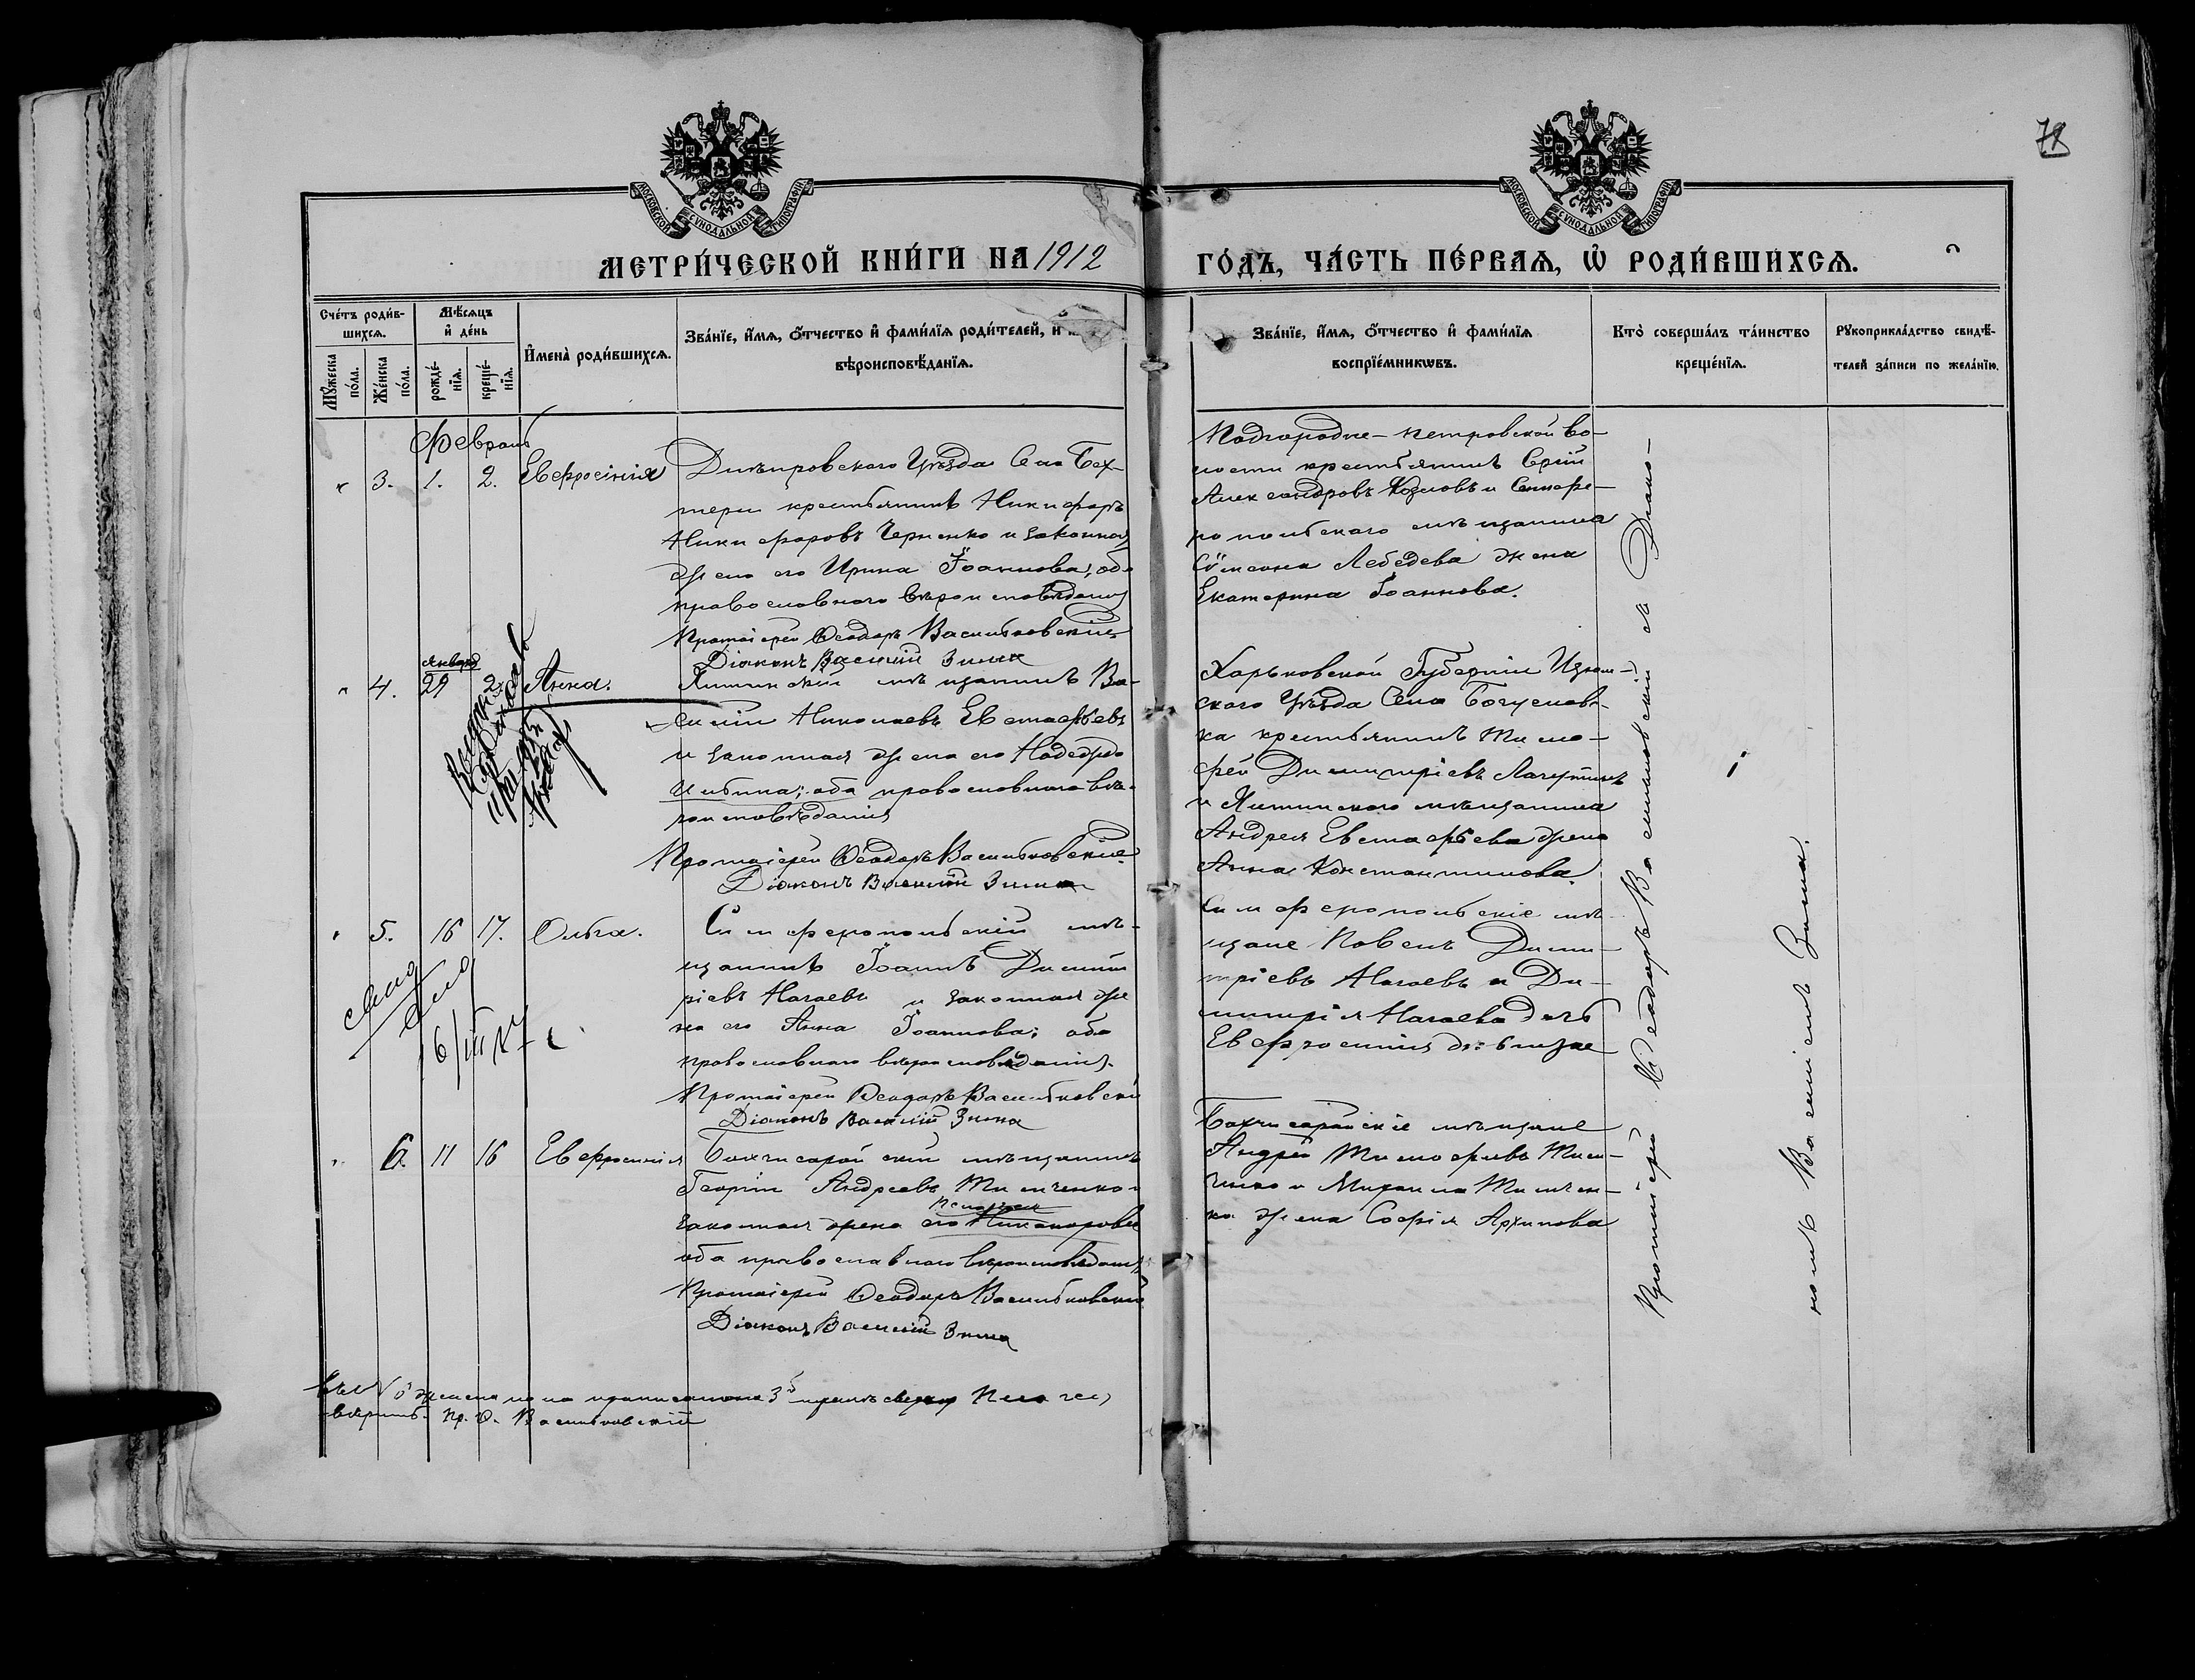 78
МОСКОВСКОЙ СѴНОДАЛЬНОЙ ТИПОГРАФІИ
МОСКОВСКОЙ СѴНОДАЛЬНОЙ ТИПОГРАФІИ
МЕТРИ́ЧЕСКОЙ КНИ́ГИ НА 1912 ГО́ДЪ, ЧА́СТЬ ПЕ́РВАѦ, Ѡ҆ РОДИ́ВШИХСѦ.
Сче́тъ роди́в-
шихсѧ.
Мѣ́сѧцъ
и҆ де́нь
Мꙋ́жеска
по́ла.
Же́нска
по́ла.
рожде́-
нїѧ.
креще́-
нїѧ.
И҆мена̀ роди́вшихсѧ.
Зва́нїе, и҆́мѧ, ѻ҆́тчество и҆ фами́лїѧ роди́телей, и
вѣроисповѣ́данїѧ.
Зва́нїе, и҆́мѧ, ѻ҆́тчество и҆ фами́лїѧ
воспрїе́мникѡвъ.
Кто̀ соверша́лъ та́инство
креще́нїѧ.
Рꙋкоприкла́дство свидѣ́-
телей за́писи по жела́нїю.
Февраль
3. 1. 2. Евфросинія
Днѣпровскаго Уѣзда Села Бех-
тери крестьянинъ Никифоръ
Никифоровъ Черненко и законная
жена его Ирина Іоаннова; оба
православнаго вѣроисповѣданія
Протоіерей Ѳеодоръ Васильковскій
Діаконъ Василій Зима
Подгородне-Петровской во-
лости крестьянинъ
Александровъ Козловъ и Симфе-
ропольскаго мѣщанина
Сѵмеона Лебедева жена
Екатерина Іоаннова.
Января
4. 29 2. Анна.
мѣщанинъ Ва-
силій Николаевъ Евстафьевъ
и законная жена его Надежда
Ильина; оба православнаго вѣ-
роисповѣданія
Протоіерей Ѳеодоръ Васильковскій
Діаконъ Василій Зима
Харьковской Губерніи Изюм-
скаго Уѣзда Села Богуславв-
ка крестьянинъ Тимо-
фей Димитріевъ
и мѣщанина
Андрея Евстафьева жена
Анна Константинова.
5. 16 17. Ольга.
Симферопольскій мѣ-
щанинъ Іоаннъ Димит
ріевъ Нагаевъ и законная же
на его Анна Іоаннова; оба
православнаго вѣроисповѣданія.
Протоіерей Ѳеодоръ Васильковскій
Діаконъ Василій Зима
Симферопольскіе мѣ-
щане Павелъ Дими-
тріевъ Нагаевъ и Ди-
митрія Нагаева дочь
Евфросинія
6. 11 16 Евфросинія
Бахчисарайскій мѣщанинъ
Георгій Андреевъ Тимченко и
законная жена его Никанорова
Пелагея
оба православнаго вѣроисповѣданія,
Протоіерей Ѳеодоръ Васильковскій
Діаконъ Василій Зима
Бахчисарайскіе мѣщане
Андрей Тимофеевъ Тим-
ченко и Михаила Тимчен-
ко жена Софія Архипова
Протоіерей Ѳеодоръ Васильковскій съ Діако-
номъ Василіемъ Зима.
Пр. Ѳ. Васильковскій